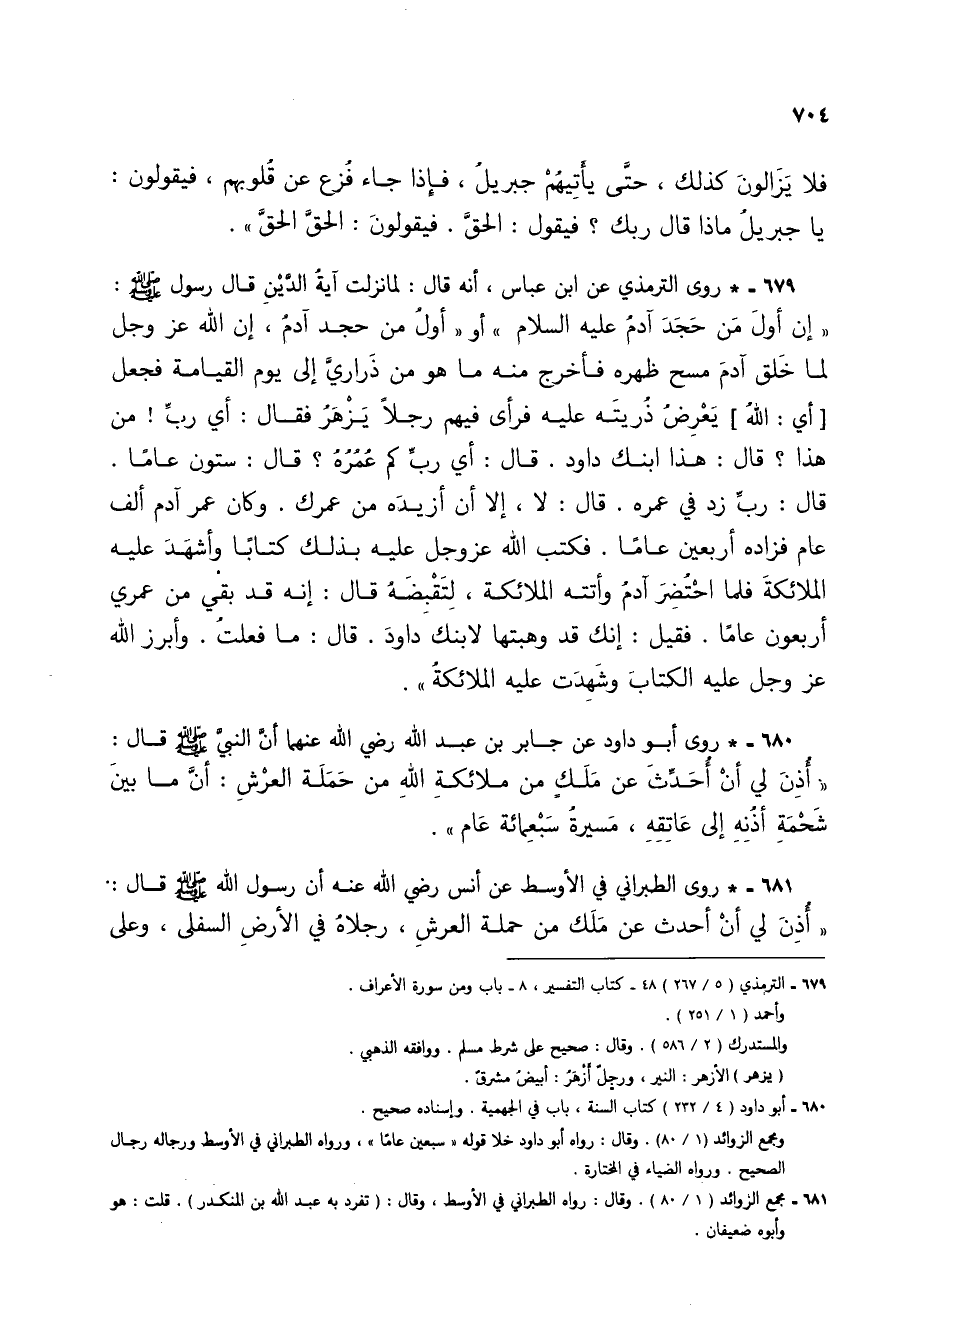 ٧٠٤
فلا يَزَالونَ كذلك ، حتَّى يأْتِيهُمْ جبريلُ ، فإذا جاء فُزع عن قُلوبهم ، فيقولون :
يا جبريلُ ماذا قال ربك ؟ فيقول : الحقَّ . فيقولونَ : الحقَّ الحقَّ » .
٦٧٩ ـ * روى الترمذي عن ابن عباس ، أنه قال : لما نزلت آيةُ الدَّيْنِ قال رسول ﷺ :
« إن أولَ مَن جَحَدَ آدمُ عليه السلام » أو « أولُ من جحد آدمُ ، إن الله عز وجل
لما خَلق آدمَ مسح ظهره فأخرج منه ما هو من ذَراريَّ إلى يوم القيامة فجعل
[ أي : اللهُ ] يَعْرِضُ ذُريتَه عليه فرأى فيهم رجلاً يَزْهَرُ فقال : أي ربِّ ! من
هذا ؟ قال : هذا ابنك داود . قال : أي ربِّ كم عُمُرُهُ ؟ قال : ستون عامًا .
قال : ربِّ زد في عمره . قال : لا ، إلا أن أزيدَه من عمرك . وكان عمر آدم ألف
عام فزاده أربعين عامًا . فكتب الله عزوجل عليه بذلك كتابًا وأشهَدَ عليه
الملائكةَ فلما احْتُضِرَ آدمُ وأتته الملائكة ، لِتَقْبِضَهُ قال : إنه قد بقي من عمري
أربعون عامًا . فقيل : إنك قد وهبتها لابنك داودَ . قال : ما فعلتُ . وأبرز الله
عز وجل عليه الكتابَ وشَهِدَت عليه الملائكةُ » .
٦٨٠ ـ * روى أبو داود عن جابر بن عبد الله رضي الله عنهما أنَّ النبيَّ ﷺ قال :
« أُذِنَ لي أنْ أُحَدِّثَ عن مَلَكٍ من ملائكةِ اللهِ من حَمَلَةِ العرْشِ : أنَّ ما بينَ
شَحْمَةِ أذُنِهِ إلى عَاتِقِهِ ، مَسيرةُ سَبْعِمائة عَام » .
٦٨١ ـ * روى الطبراني في الأوسط عن أنس رضي الله عنه أن رسول الله ﷺ قال :
« أُذِنَ لي أنْ أحدث عن مَلَك من حملة العرشِ ، رجلاهُ في الأرضِ السفلى ، وعلى
٦٧٩ ـ الترمذي ( ٥ / ٢٦٧ ) ٤٨ ـ كتاب التفسير ، ٨ ـ باب ومن سورة الأعراف .
وأحمد ( ١ / ٢٥١ ) .
والمستدرك ( ٢ / ٥٨٦ ) . وقال : صحيح على شرط مسلم . ووافقه الذهبي .
( يزهر ) الأزهر : النير ، ورجلٌ أزْهَرُ : أبيضُ مشرقٌ .
٦٨٠ ـ أبو داود ( ٤ / ٢٣٢ ) كتاب السنة ، باب في الجهمية . وإسناده صحيح .
ومجمع الزوائد (١ / ٨٠) . وقال : رواه أبو داود خلا قوله « سبعين عامًا » ، ورواه الطبراني في الأوسط ورجاله رجال
الصحيح . ورواه الضياء في المختارة .
٦٨١ ـ مجمع الزوائد ( ١ / ٨٠ ) . وقال : رواه الطبراني في الأوسط ، وقال : ( تفرد به عبد الله بن المنكدر ) . قلت : هو
وأبوه ضعيفان .